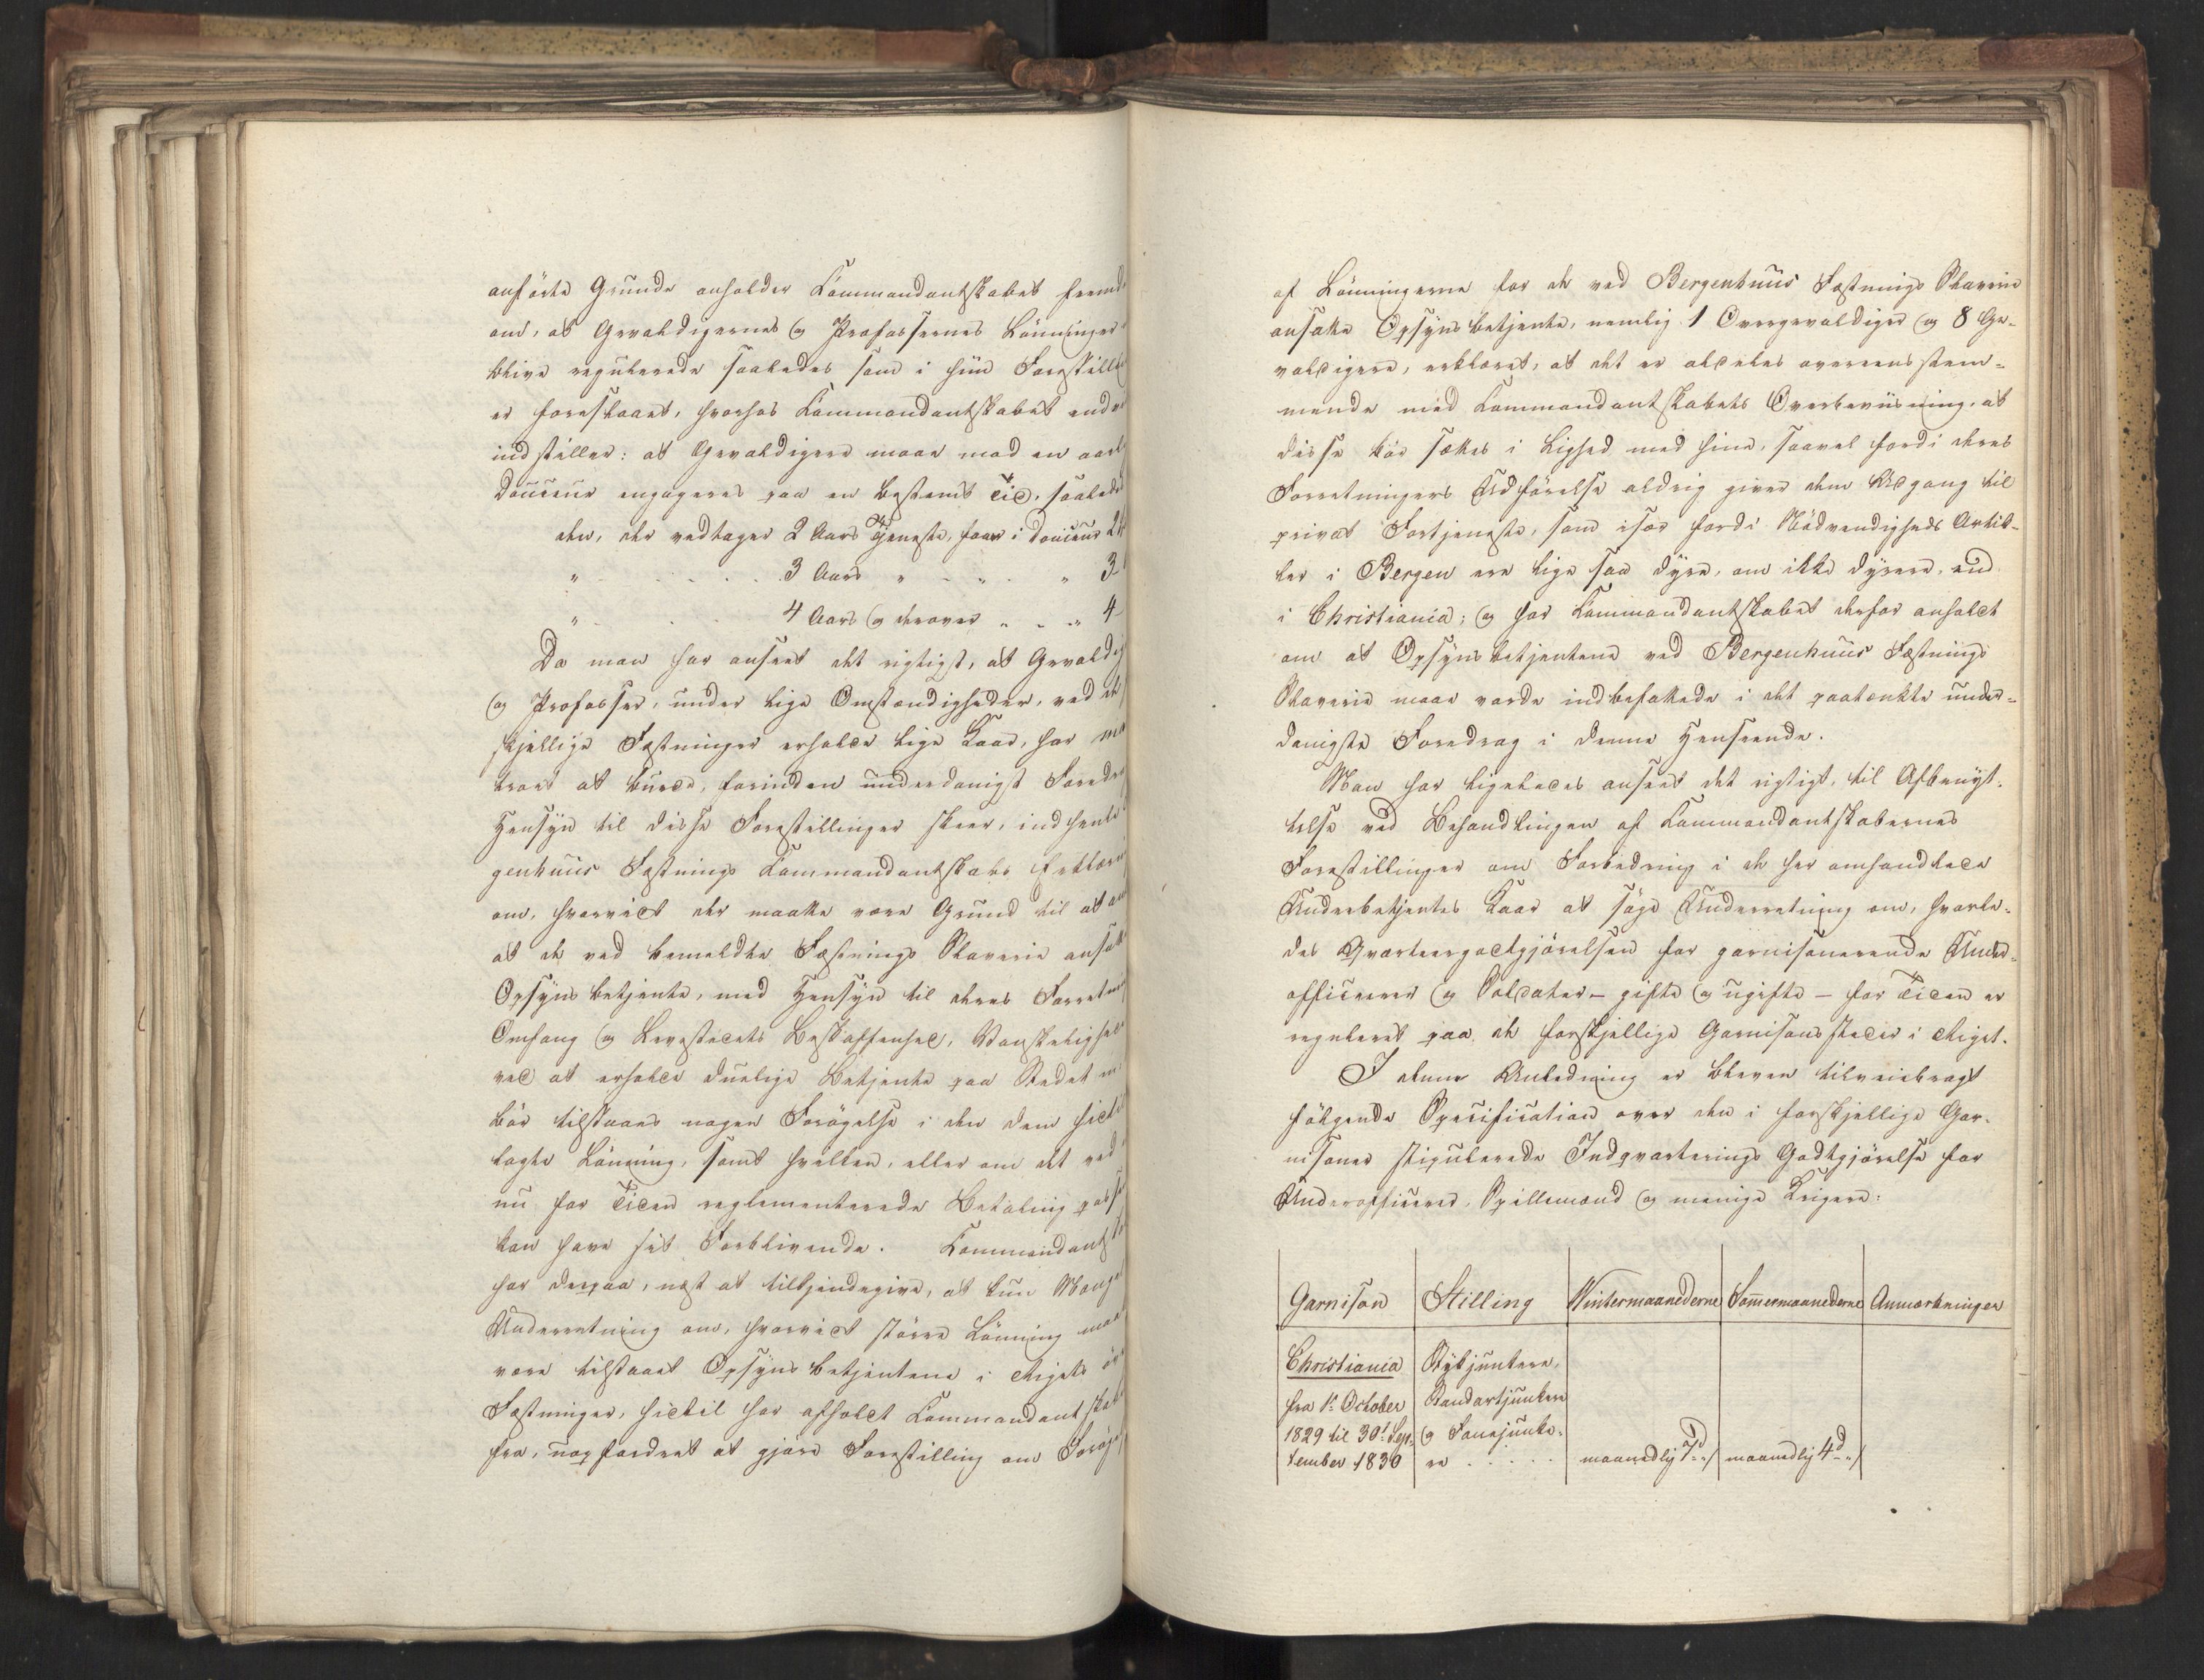 anførte Grunde anholder Commandantskabet fremd
om, at Gevaldigernes og Professernes Lønninger
blive regulerede saaledes som i hiin Forestill
er foreslaaet, hvorhos Commandantskabet end
indstiller: at Gevaldigere maae mod en aarl
Douceur engageres paa en bestemt Tid, saaled
den, der vedtager 2 Aars Tjeneste, faaer i Douceur 2
" 3 Aars " " " 3
" 4 Aars og derover " " 4
Da man har anseet det rigtigst, at Gevaldig
og Professer, under lige Omstændigheder, ved de
skjellige Fæstninger erholde lige Kaar, har m
troet at burde, forinden underdanigst Foredr
Hensyn til disse Forestillinger skeer, indhente
genhuus Fæstnings Commandantskabs Erklæri
om, hvorvidt der maatte være Grund til at an
at de ved bemeldte Fæstnings Slaverie ansatt
Opsynsbetjente, med Hensyn til deres Forretni
Omfang og Levestedets Beskaffenhed, Vanskelighed
ved at erholde duelige Betjente paa Stedet m
bør tilstaaes nogen Forøgelse i den dem hidtil
lagte Lønning, samt hvilken, eller om det ved
nu for Tiden reglementerede Betaling
kan have sit Forblivende. Commandantsk
har derpaa, næst at tilkjendegive, at kun Mangel
Underretning om, hvorvidt større Lønning maa
være tilstaaet Opsynsbetjentene i Rigets øv
Fæstninger, hidtil har afholdt Commandantskab
fra, uopfordret at gjøre Forestilling om Forøg
af Lønningerne for de ved Bergenhuus Fæstnings Slaverie
ansatte Opsynsbetjente, nemlig 1 Overgevaldiger og 8 Ge-
valdigere, erklæret, at det er aldeles overeensstem-
mende med Commandantskabets Overbeviisning, at
disse bør sættes i Lighed med hine, saavel fordi deres
Forretningers Udførelse aldrig giver dem Adgang til
privat Fortjeneste, som især fordi Nødvendigheds Artik-
ler i Bergen ere lige saa dyre, om ikke dyrere, end
i Christiania; og har Commandantskabet derfor anholdt
om at Opsynsbetjentene ved Bergenhuus Fæstnings
Slaverie maae vorde indbefattede i det paatænkte under-
danigste Foredrag i denne Henseende.
Man har ligeledes anseet det rigtigt, til Afbenyt-
telse ved Behandlingen af Commandantskabernes
Forestillinger om Forbedring i de her omhandlede
Underbetjentes Kaar at søge Underretning om, hvorle-
des Qvarteergodtgjørelsen for garnisonerende Under-
officerer og Soldater – gifte og ugifte – for Tiden er
reguleret paa de forskjellige Garnisonssteder i Riget.
I denne Anledning er bleven tilveiebragt
følgende Specification over den i forskjellige Gar-
nisoner stipulerede Indqvarterings Godtgjørelse for
Underofficerer, Spillemænd og menige Krigere:
Garnison Stilling Wintermaanederne Sommermaanederne Anmærkninger
Christiania Stykjunkere,
fra 1ste October Standartjunkere
1829 til 30te Sep- og Fanejunke-
tember 1830 re . . . . . maanedlig 7d " / maanedlig 4d " /